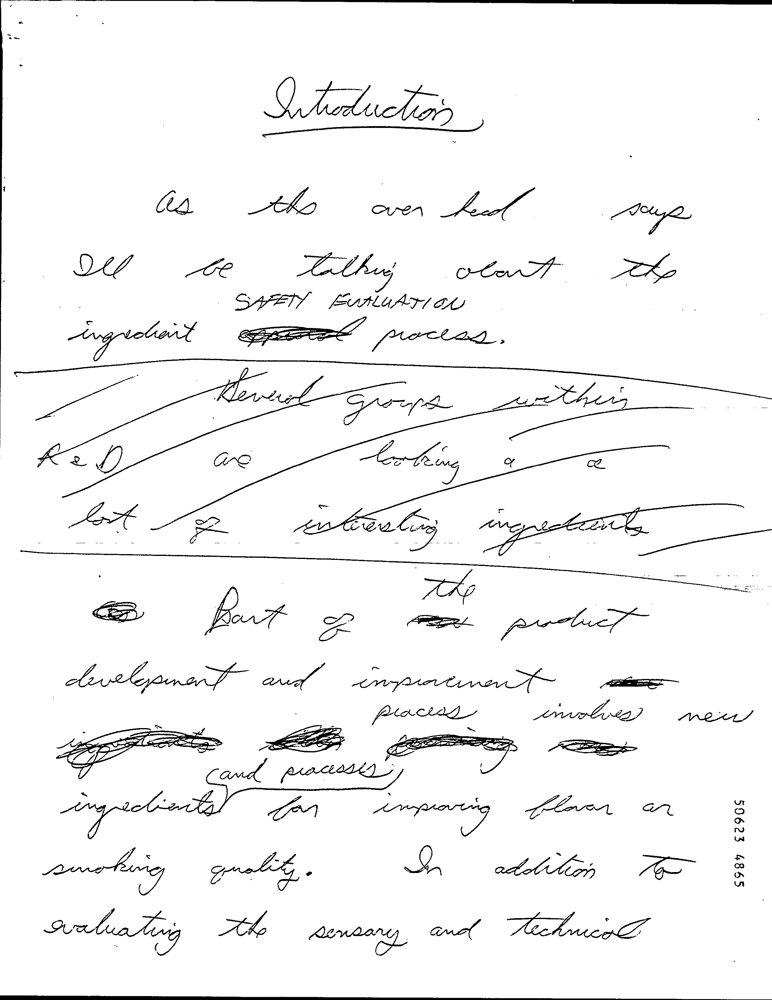 Introduction
As the over head says
I'll be talking about the
SAFETY EVALUATION
ingredient process.
Several groups within
R&D are looking a a
lost of interesting ingredients
the
Part of product
development and improvement
process involves new
(and processes)
ingredients for improving flavor or
smoking quality. In addition to
evaluating the sensory and technical
50623 4865